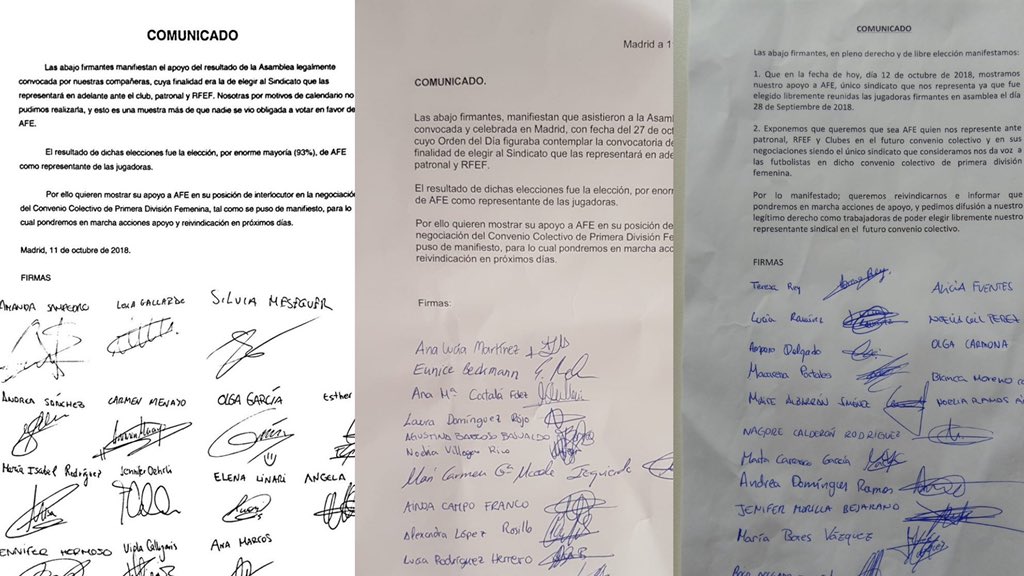 COMUNICADO
Las abajo firmantes manifiestan el apoyo del resultado de la Asamblea legalmente
convocada por nuestras compañeras, cuya finalidad era la de elegir al Sindicato que las
representará en adelante ante el club, patronal y RFEF. Nosotras por motivos de calendario no
pudimos realizarla, y esto es una muestra más de que nadie se vio obligada a votar en favor de
AFE.
El resultado de dichas elecciones fue la elección, por enorme mayoría (93%), de AFE
como representante de las jugadoras.
Por ello quieren mostrar su apoyo a AFE en su posición de interlocutor en la negociación
del Convenio Colectivo de Primera División Femenina, tal como se puso de manifiesto, para lo
cual pondremos en marcha acciones apoyo y reivindicación en próximos días.
Madrid, 11 de octubre de 2018.
FIRMAS
AMANDA SAMPEDRO LOLA GALLARDO SILVIA MESEGUER
ANDREA SÁNCHEZ CARMEN MENAYO OLGA GARCÍA Esther
María Isabel Rodríguez Jennifer ELENA LINARI ANGELA
JENNIFER HERMOSO Viola Calligaris ANA MARCOS
Madrid a 1
COMUNICADO.
Las abajo firmantes, manifiestan que asistieron a la Asam
convocada y celebrada en Madrid, con fecha del 27 de oct
cuyo Orden del Día figuraba contemplar la convocatoria d
finalidad de elegir al Sindicato que las representará en ade
patronal y RFEF.
El resultado de dichas elecciones fue la elección, por enor
de AFE como representante de las jugadoras.
Por ello quieren mostrar su apoyo a AFE en su posición de
negociación del Convenio Colectivo de Primera División Fe
puso de manifiesto, para lo cual pondremos en marcha acc
reivindicación en próximos días.
Firmas:
Ana Lucía Martínez
Eunice Beckmann
Ana Mª Catalá Fdez
Laura Domínguez Rojo
AGUSTINA BARROSO BASUALDO
Noelia Villegas Rico
Mari Carmen Gª Izquierdo
AINOA CAMPO FRANCO
Alexandra López Rosillo
Luisa Rodríguez Herrero
COMUNICADO
Las abajo firmantes, en pleno derecho y de libre elección manifestamos:
1. Que en la fecha de hoy, día 12 de octubre de 2018, mostramos
nuestro apoyo a AFE, único sindicato que nos representa ya que fue
elegido libremente reunidas las jugadoras firmantes en asamblea el día
28 de Septiembre de 2018.
2. Exponemos que queremos que sea AFE quien nos represente ante
patronal, RFEF y Clubes en el futuro convenio colectivo y en sus
negociaciones siendo el único sindicato que consideramos nos da voz a
las futbolistas en dicho convenio colectivo de primera división
femenina.
Por lo manifestado; queremos reivindicarnos e informar que
pondremos en marcha acciones de apoyo, y pedimos difusión a nuestro
legítimo derecho como trabajadoras de poder elegir libremente nuestro
representante sindical en el futuro convenio colectivo.
FIRMAS
Teresa Rey ALICIA FUENTES
Lucía Ramírez NOELIA GIL PEREZ
Amparo Delgado OLGA CARMONA
Macarena Portales BLANCA MORENO
MAITE ALBARRÁN JIMÉNEZ NOELIA RAMOS
NAGORE CALDERÓN RODRÍGUEZ
Marta Carrasco García
Andrea Domínguez Ramos
JENIFER MORILLA BEJARANO
María Bores Vázquez